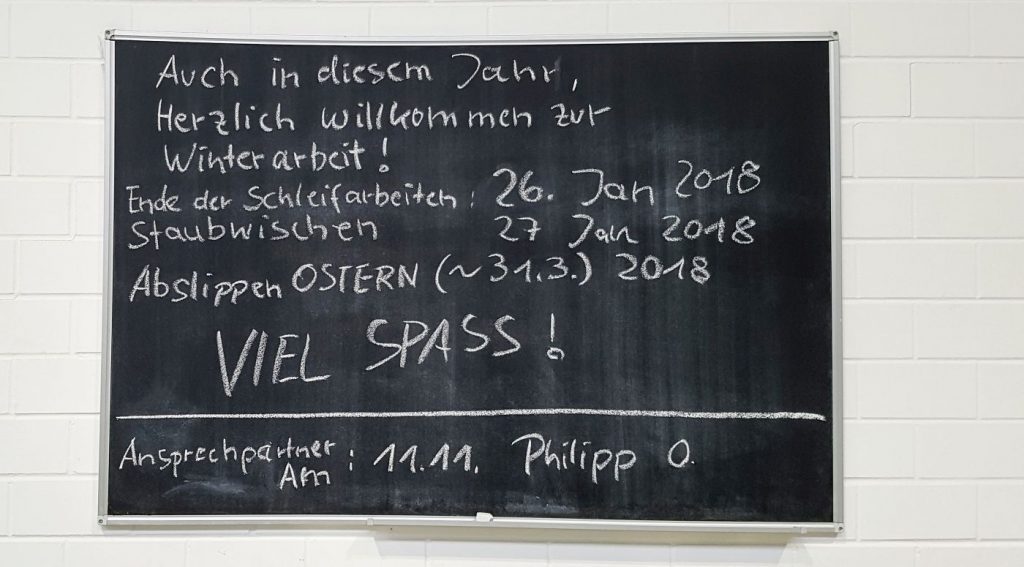 Auch in diesem Jahr,
Herzlich willkommen zur
Winterarbeit!
Ende der Schleifarbeiten: 26. Jan 2018
Staubwischen 27 Jan 2018
Abslippen OSTERN (~31.3.) 2018
VIEL SPASS!
Ansprechpartner
Am : 11.11. Philipp O.